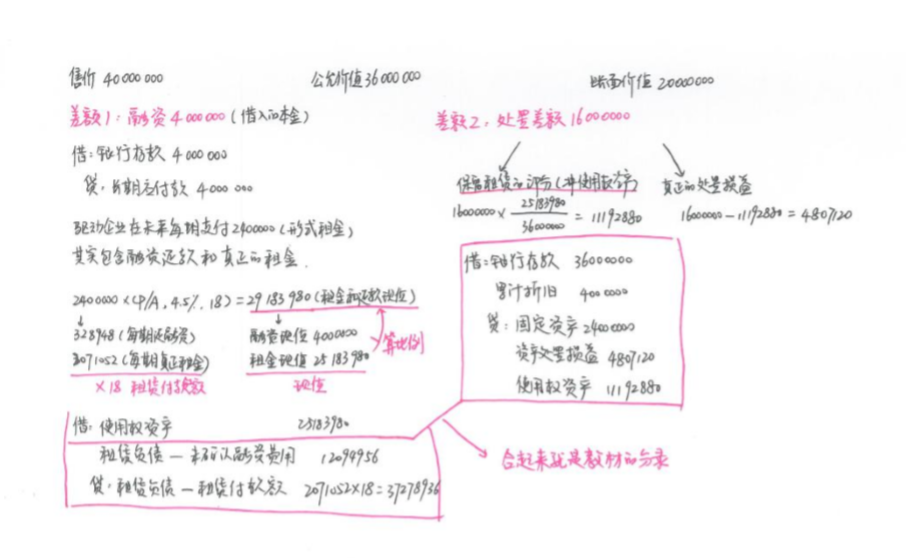 售价 40000000
公允价值 36000000
账面价值 20000000
差额1：融资 4000000（借入的本金）
借：银行存款 4000000
贷：长期应付款 4000000
驱动企业在未来每期支付 2400000（形式租金）
其实包含融资还款和真正的租金.
2400000×(P/A, 4.5%, 18) = 29183980（租金和还款现值）
328948（每期还融资）
2071052（每期真正租金）
×18 租赁付款额
融资现值 4000000
租金现值 25183980
现值
算比例
差额2：处置差额 16000000
保留租赁的部分（进使用权资产）
16000000 × 25183980/36000000 = 11192880
真正的处置损益
16000000 - 11192880 = 4807120
借：银行存款 36000000
累计折旧 4000000
贷：固定资产 24000000
资产处置损益 4807120
使用权资产 11192880
借：使用权资产 25183980
租赁负债 — 未确认融资费用 12094956
贷：租赁负债 — 租赁付款额 2071052×18=37278936
合起来就是教材的分录